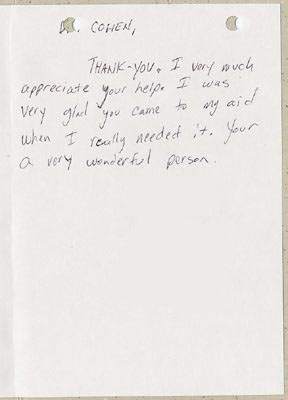 Dr. COHEN,
THANK-YOU. I very much
appreciate your help. I was
very glad you came to my aid
when I really needed it. Your
a very wonderful person.